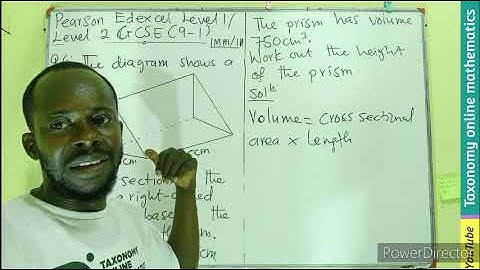 Pearson Edexcel Level 1/
Level 2 GCSE (9-1)
Q6: The diagram shows a
cm
cm
section
the
a right-
base
the
m.
cm
The prism has volume
750cm³.
Work out the height
of the prism
Volume = Cross sectional
area × Length
TAXONOMY
ONLINE
Taxonomy online mathematics
YouTube
PowerDirector